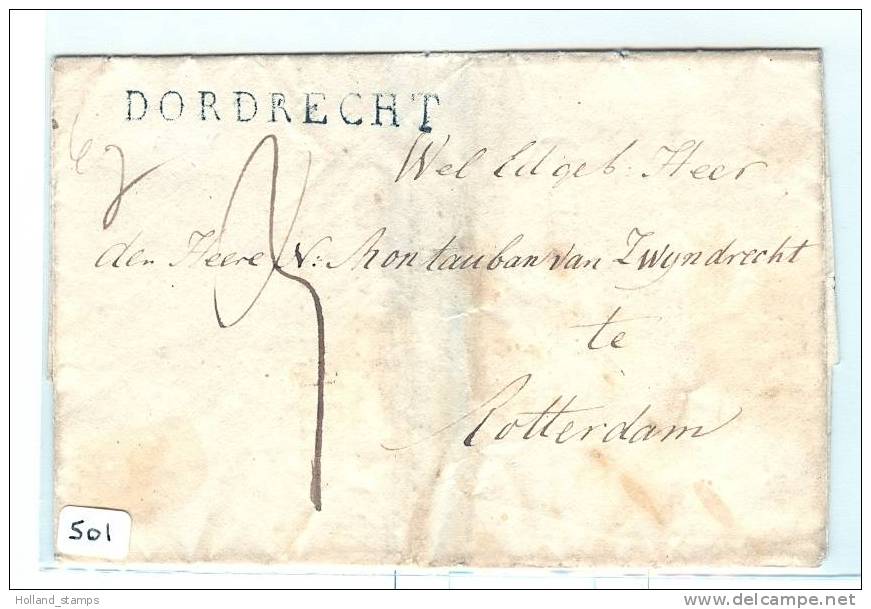 DORDRECHT
Wel Edgeb: Heer
den Heere N: Montauban van Zwyndrecht
te
Rotterdam
501
Holland_stamps
delcampe.net